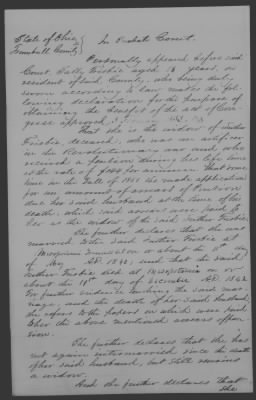 State of Ohio
Trumbull County
In Probate Court.
Personally appeared before said
Court, Sally Frisbie aged years, a
resident of said County, who being duly
sworn according to law makes the fol-
lowing declaration for the purpose of
obtaining the benefit of the act of Con-
gress approved
That she is the widow of Luther
Frisbie, deceased, who was an artificer
in the Revolutionary war and who
received a pension during his life time
at the rate of per annum. That some
time in the Fall of she made application
for an amount of arrears of Pension
due her said husband at the time of his
death, which said arrears were paid to
her as the widow of the said Luther Frisbie.
She further declares that she was
married to the said Luther Frisbie at
on or about the 8th day
of May A.D. and that he said
Luther Frisbie died at on or
about the day of December A.D. 1842
For further evidence touching the said mar-
riage, and the death of her said husband,
she refers to the papers on which were paid
to her the above mentioned arrears of pen-
sion.
She further declares that she has
not again intermarried since the death
of her said husband, but still remains
a widow.
And she further declares that
she